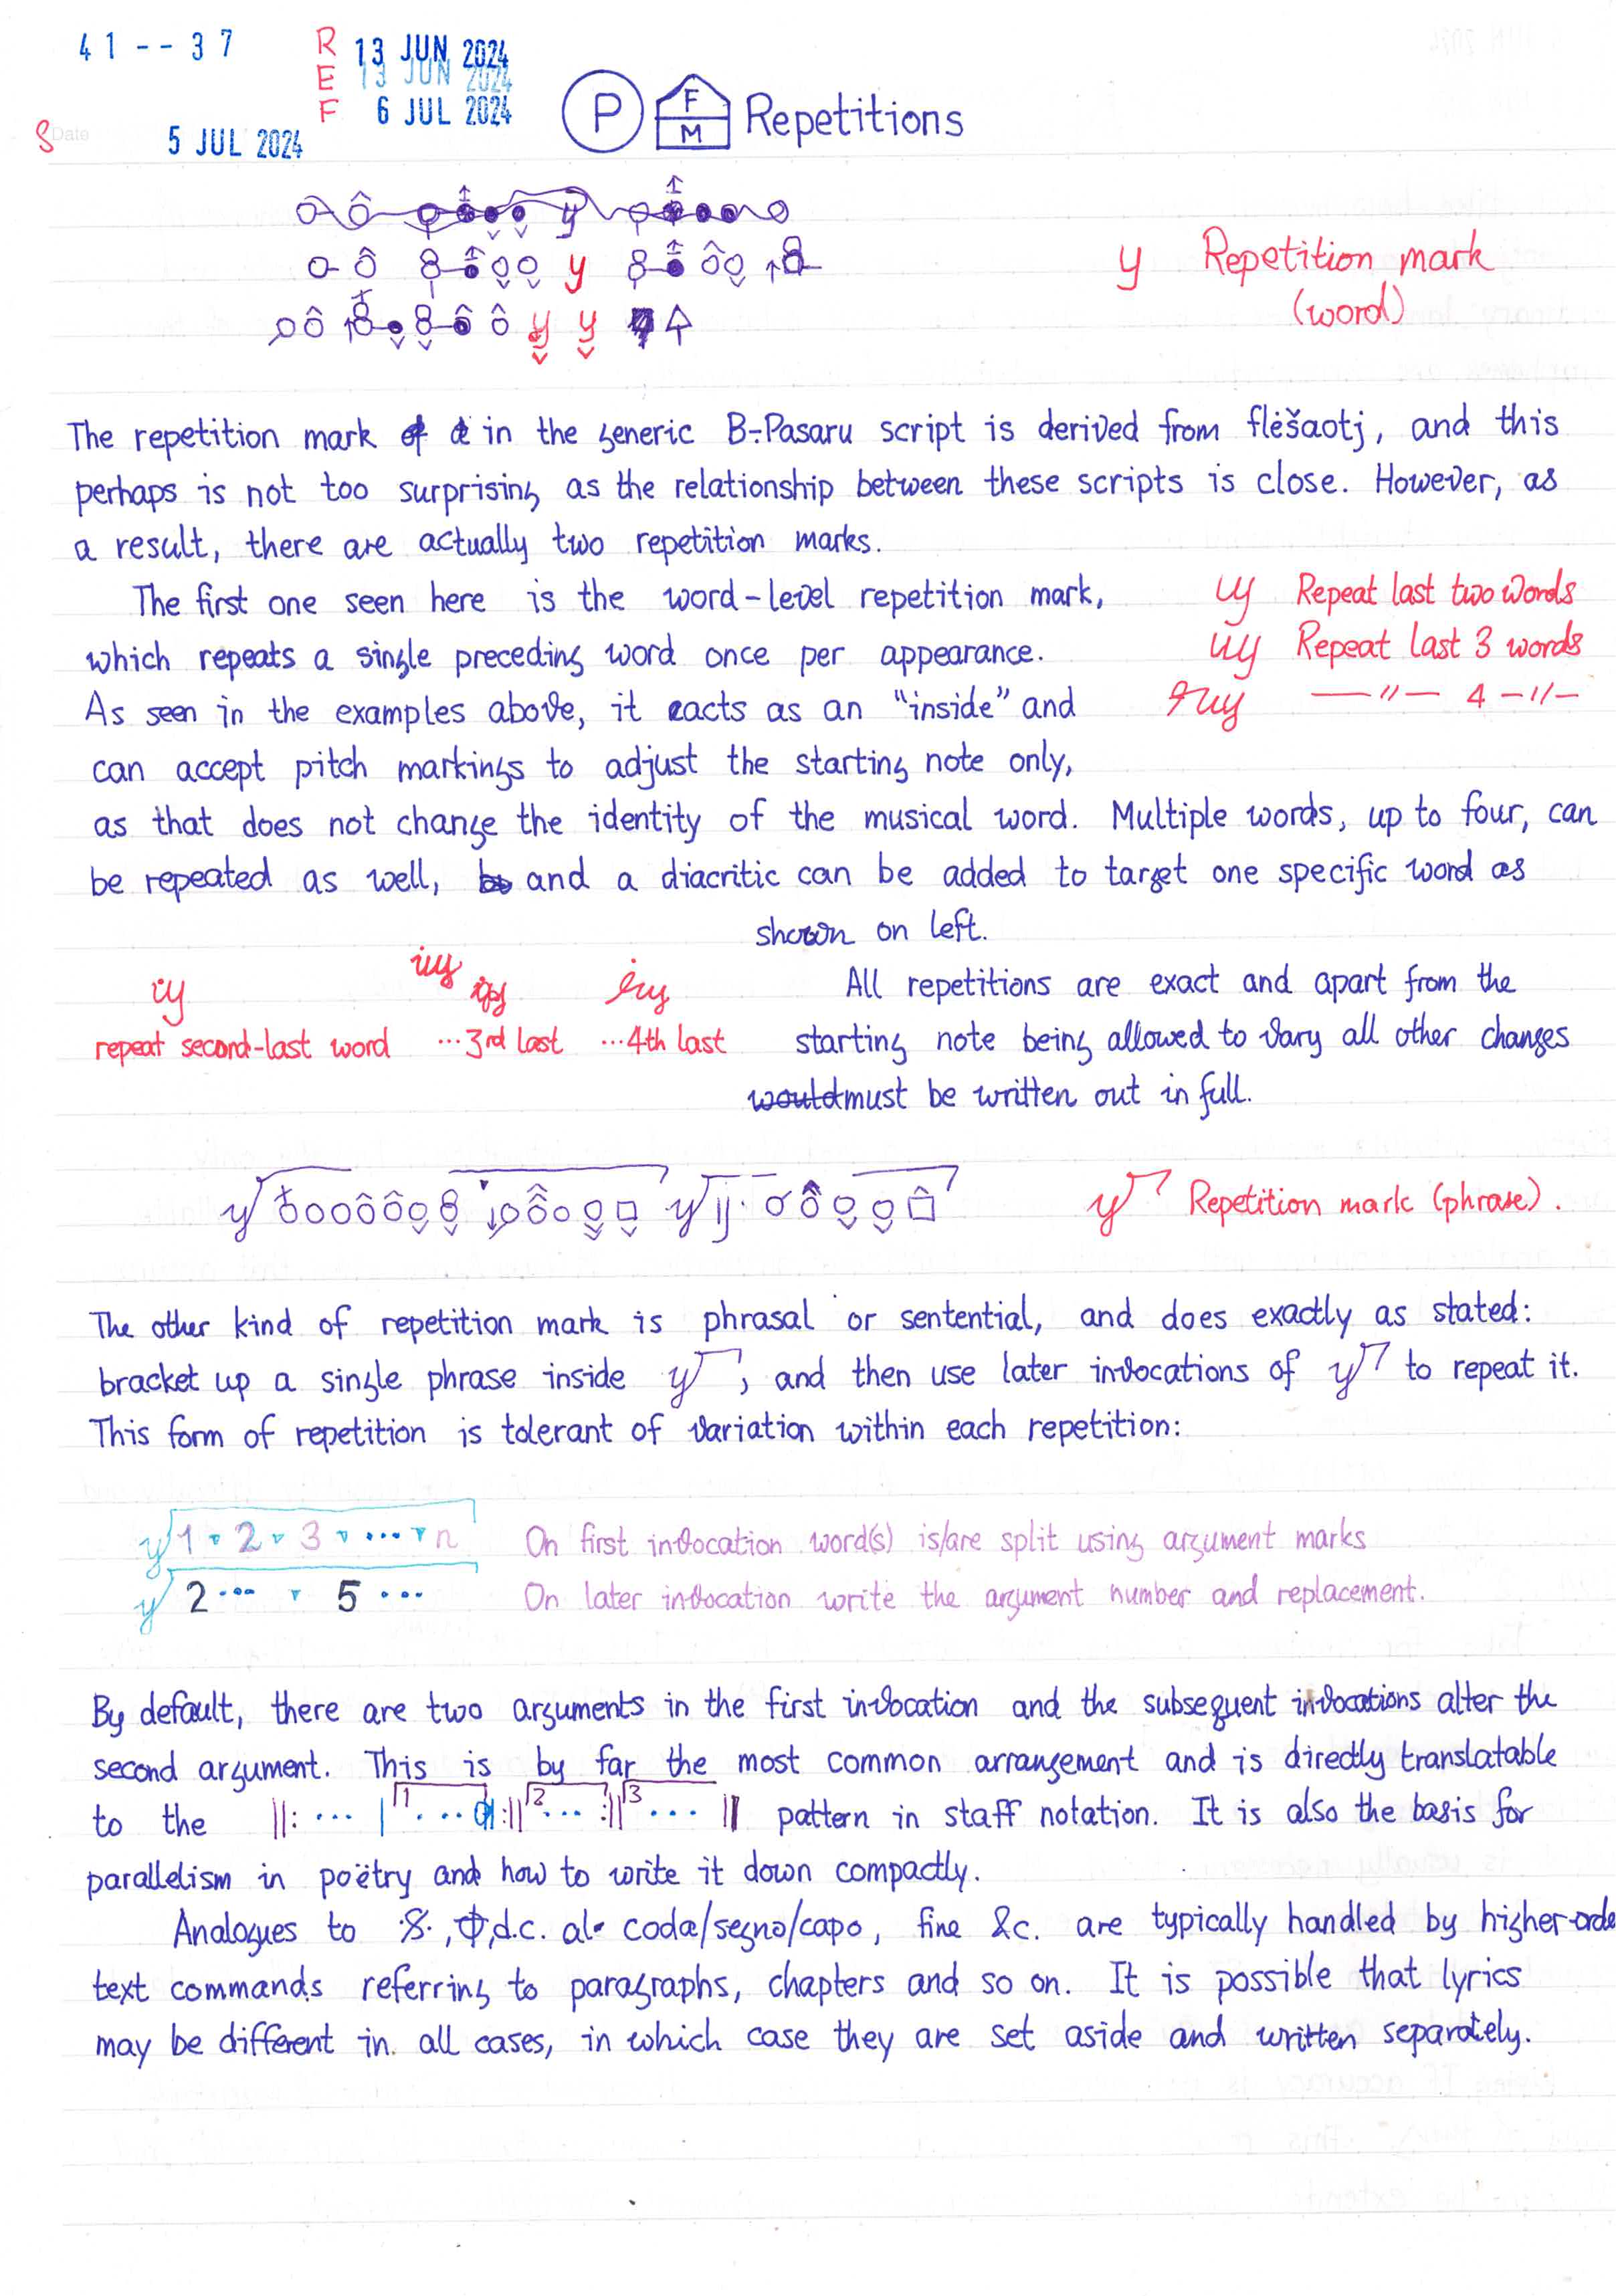 41--37
REF
13 JUN 2024
13 JUN 2024
6 JUL 2024
Date
5 JUL 2024
P F M Repetitions
y Repetition mark
(word)
The repetition mark in the generic B-Pasaru script is derived from flėšaotj, and this
perhaps is not too surprising as the relationship between these scripts is close. However, as
a result, there are actually two repetition marks.
The first one seen here is the word-level repetition mark,
which repeats a single preceding word once per appearance.
As seen in the examples above, it acts as an "inside" and
can accept pitch markings to adjust the starting note only,
as that does not change the identity of the musical word. Multiple words, up to four, can
be repeated as well, and a diacritic can be added to target one specific word as
shown on left.
Repeat last two words
Repeat last 3 words
—〃— 4 —〃—
repeat second-last word ...3rd last ...4th last
All repetitions are exact and apart from the
starting note being allowed to vary all other changes
would must be written out in full.
y Repetition mark (phrase).
The other kind of repetition mark is phrasal or sentential, and does exactly as stated:
bracket up a single phrase inside y, and then use later invocations of y to repeat it.
This form of repetition is tolerant of variation within each repetition:
y 1 ▾ 2 ▾ 3 ▾ ... ▾ n On first invocation word(s) is/are split using argument marks
y 2 ... ▾ 5 ... On later invocation write the argument number and replacement.
By default, there are two arguments in the first invocation and the subsequent invocations alter the
second argument. This is by far the most common arrangement and is directly translatable
to the ||: ... | 1 ... :|| 2 ... :|| 3 ... || pattern in staff notation. It is also the basis for
parallelism in poëtry and how to write it down compactly.
Analogues to 𝄋, 𝄌, d.c. al coda/segno/capo, fine &c. are typically handled by higher-orde
text commands referring to paragraphs, chapters and so on. It is possible that lyrics
may be different in all cases, in which case they are set aside and written separately.